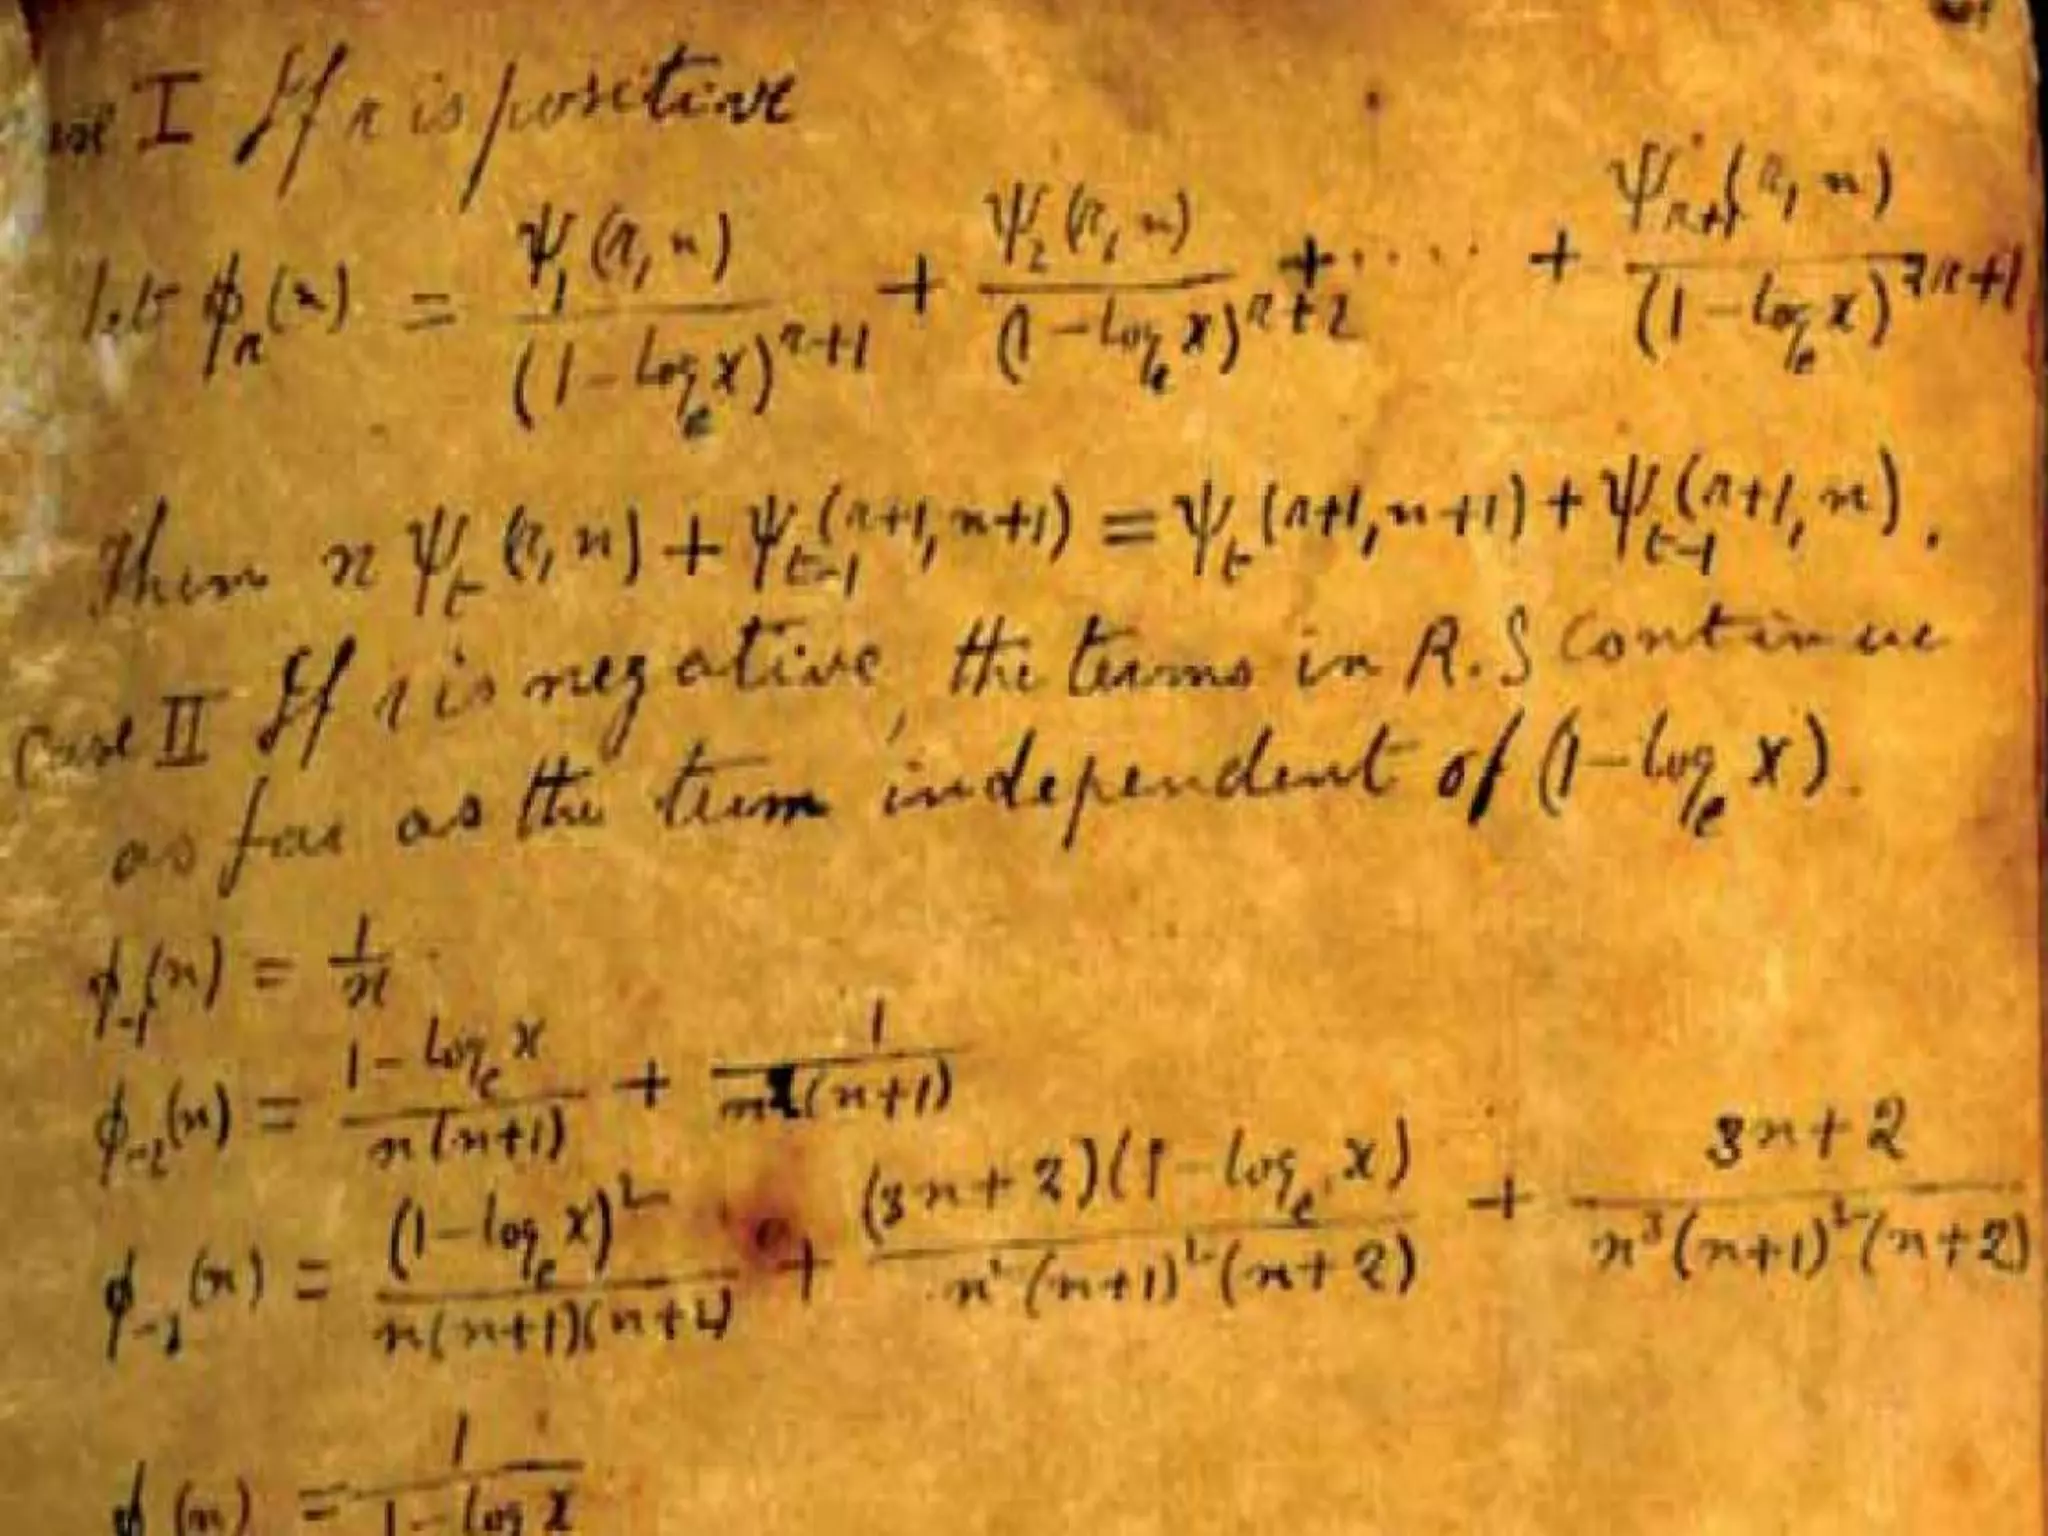 Case I If r is positive
let φ_r(n) = ψ_1(r, n) / (1 - log_e x)^{r+1} + ψ_2(r, n) / (1 - log_e x)^{r+2} + .... + ψ_{r+1}(r, n) / (1 - log_e x)^{2r+1}
Then n ψ_t(r, n) + ψ_{t-1}(r+1, n+1) = ψ_t(r+1, n+1) + ψ_{t-1}(r+1, n).
Case II If r is negative, the terms in R.S continue
as far as the term independent of (1 - log_e x).
φ_{-1}(n) = 1/n.
φ_{-2}(n) = (1 - log_e x) / n(n+1) + 1 / n^2(n+1)
φ_{-3}(n) = (1 - log_e x)^2 / n(n+1)(n+2) + (3n+2)(1 - log_e x) / n^2(n+1)^2(n+2) + (3n+2) / n^3(n+1)^2(n+2)
φ (n) = 1 / (1 - log x